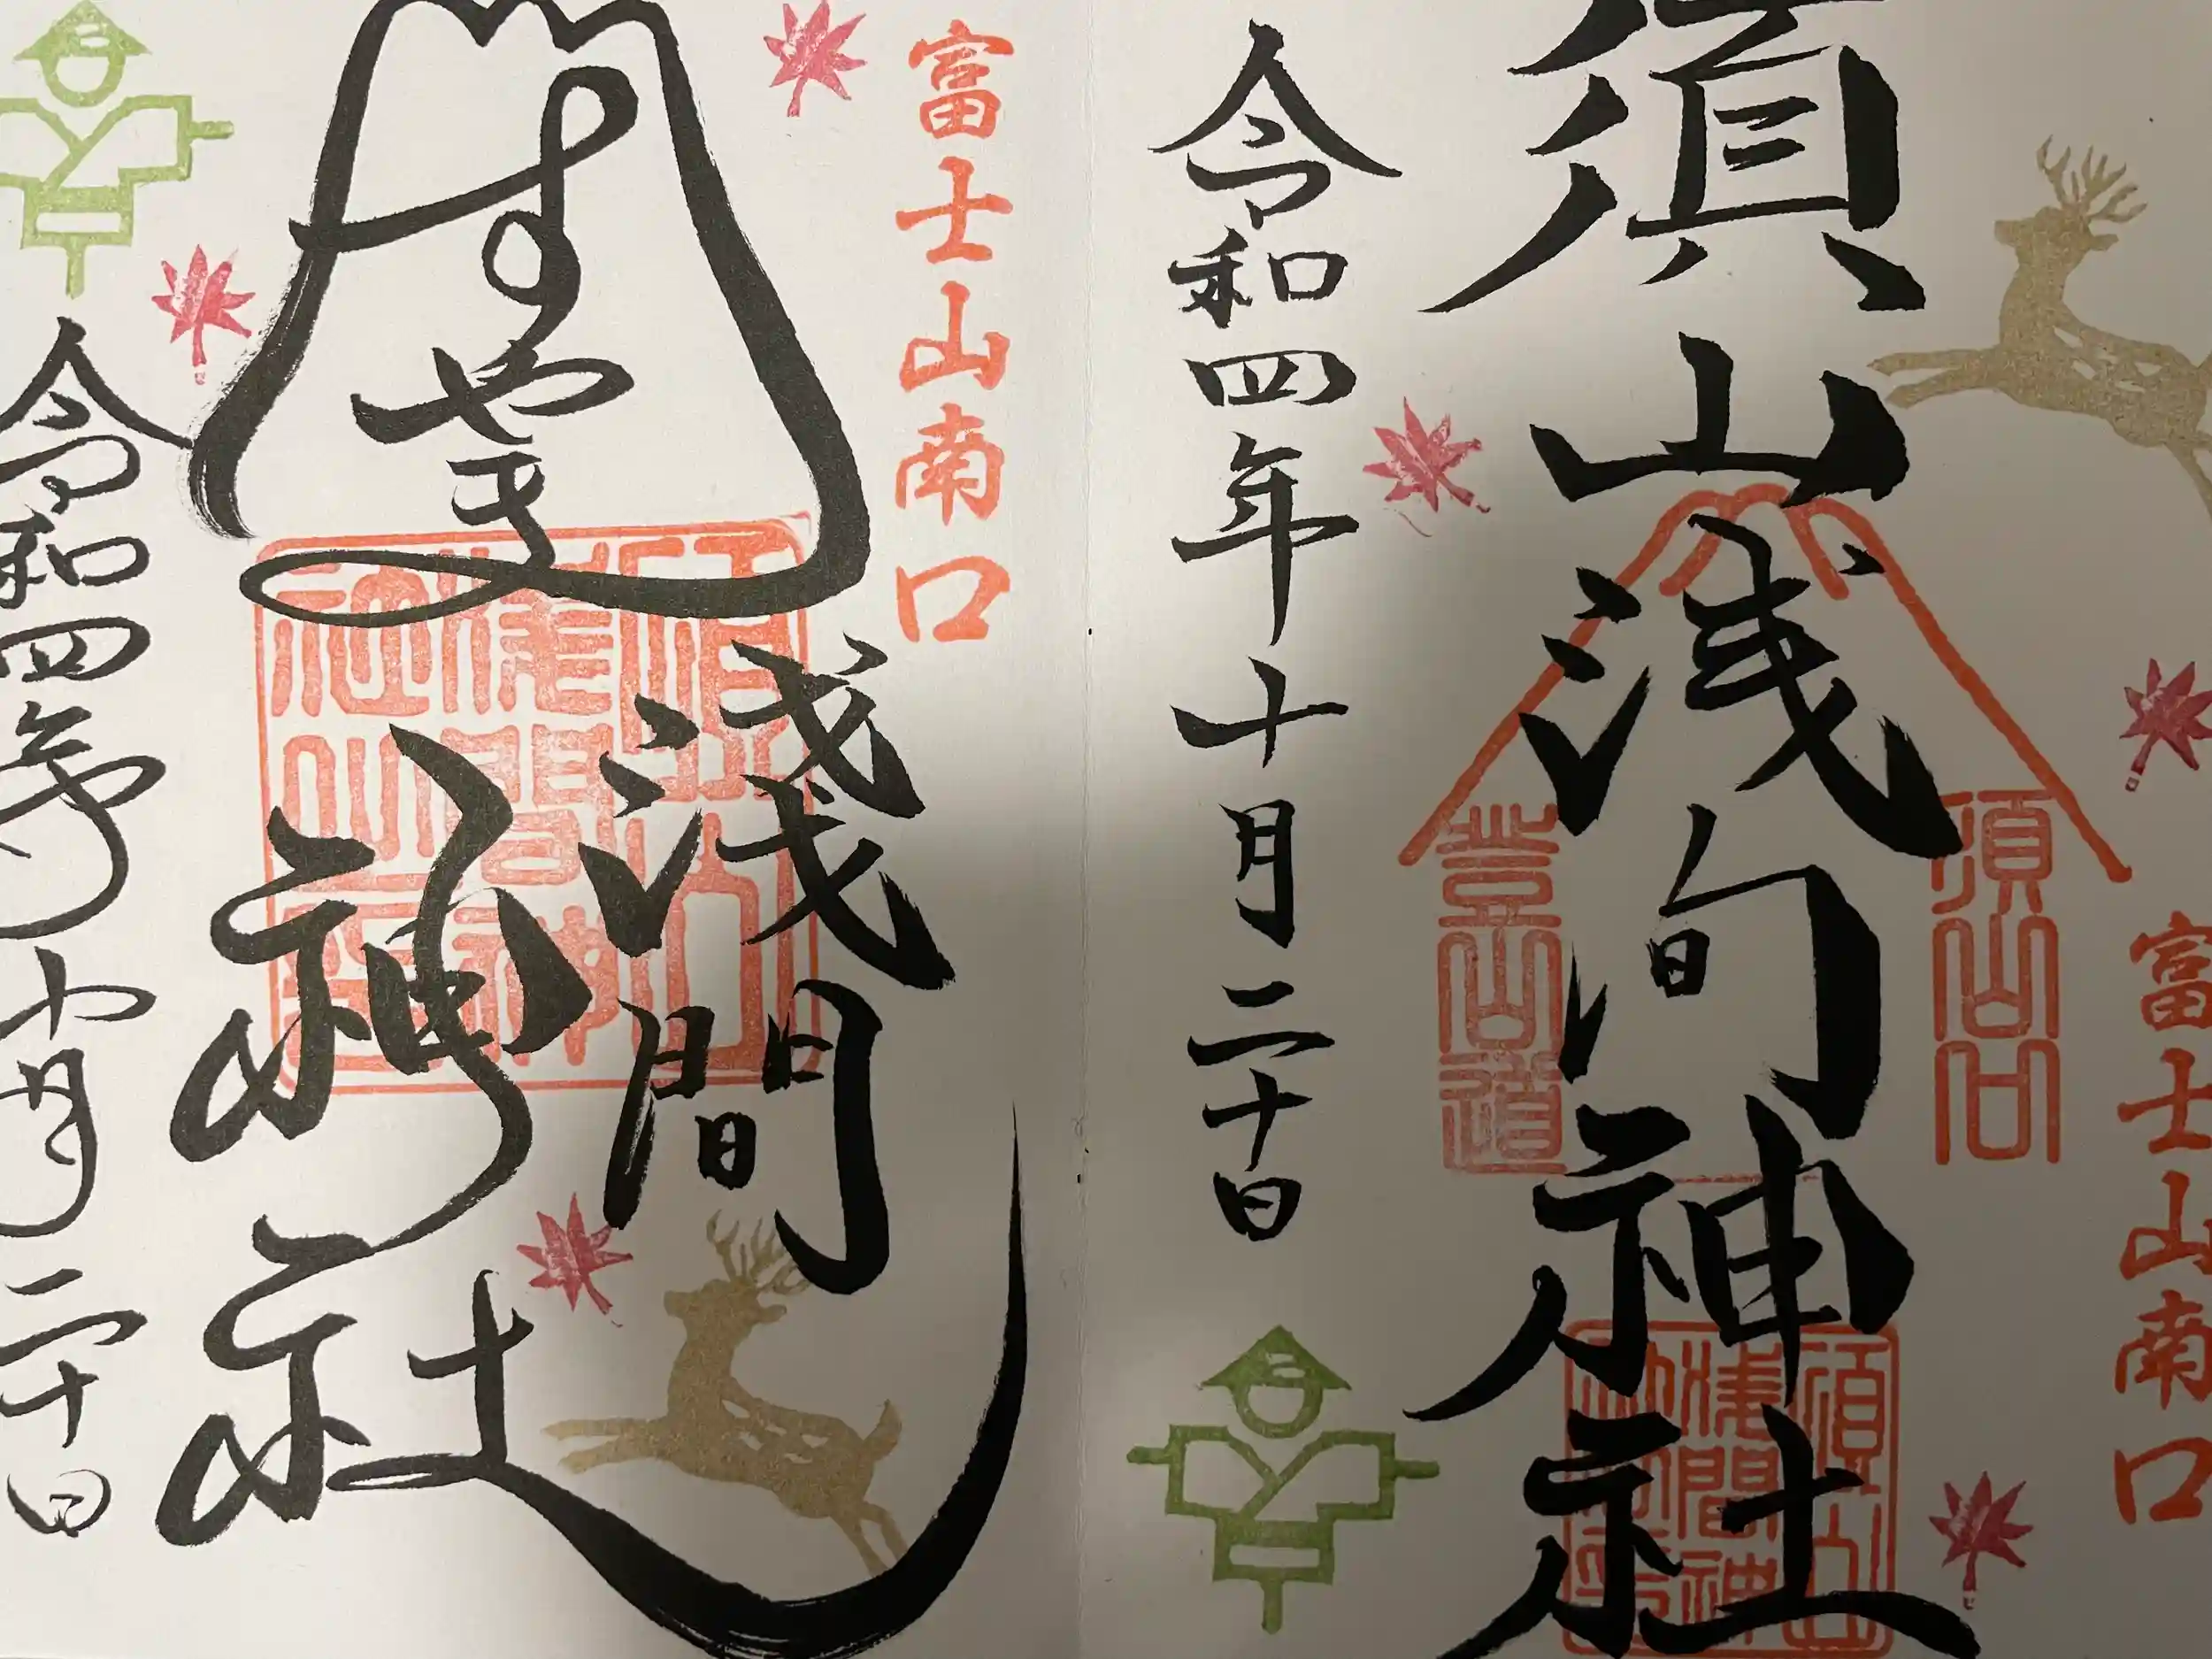 富士山南口
須山浅间神社
須山口
登山道
須山浅間神社
令和四年十月二十日
富士山南口
すやま
淺間
神社
須山浅間神社
令和四年十月二十日